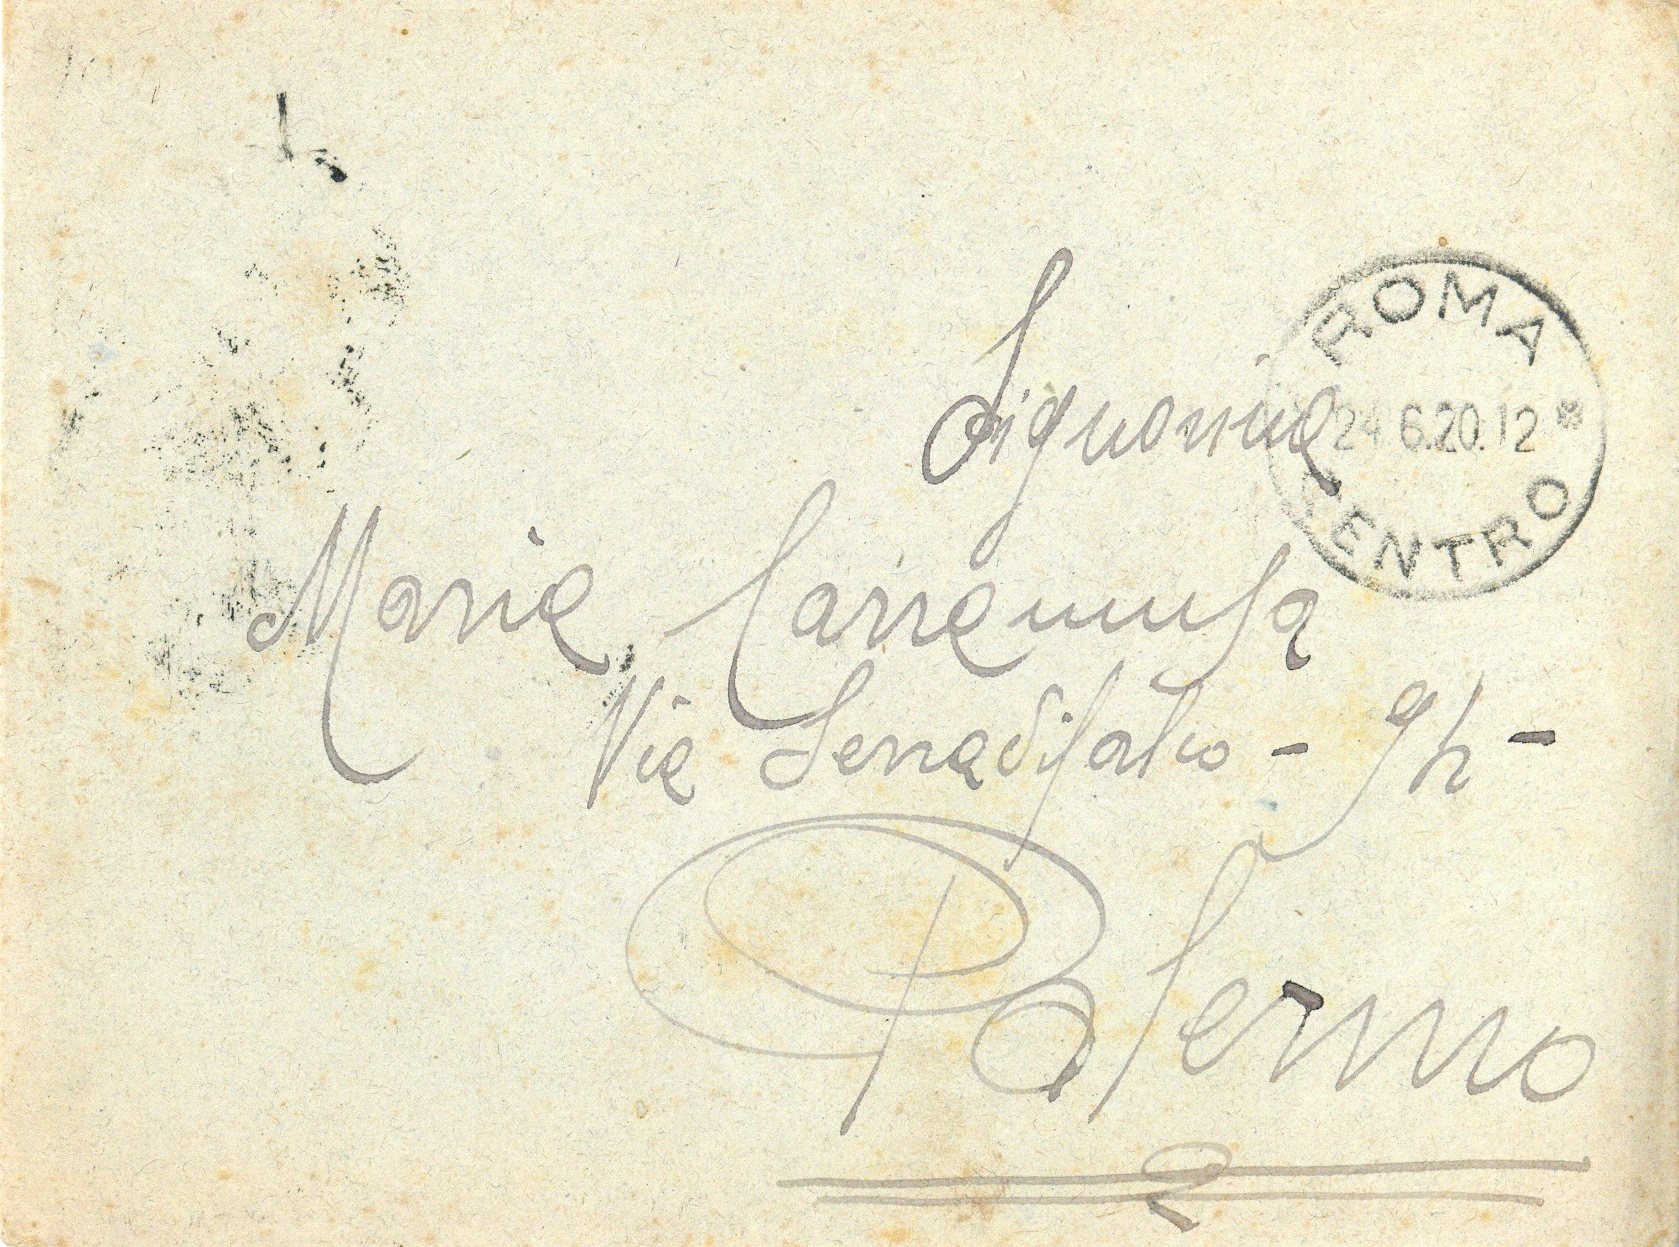 ROMA
24 6.20.12 *
CENTRO
Signorina
Maria Carramusa
Via Serradifalco - 94 -
Palermo